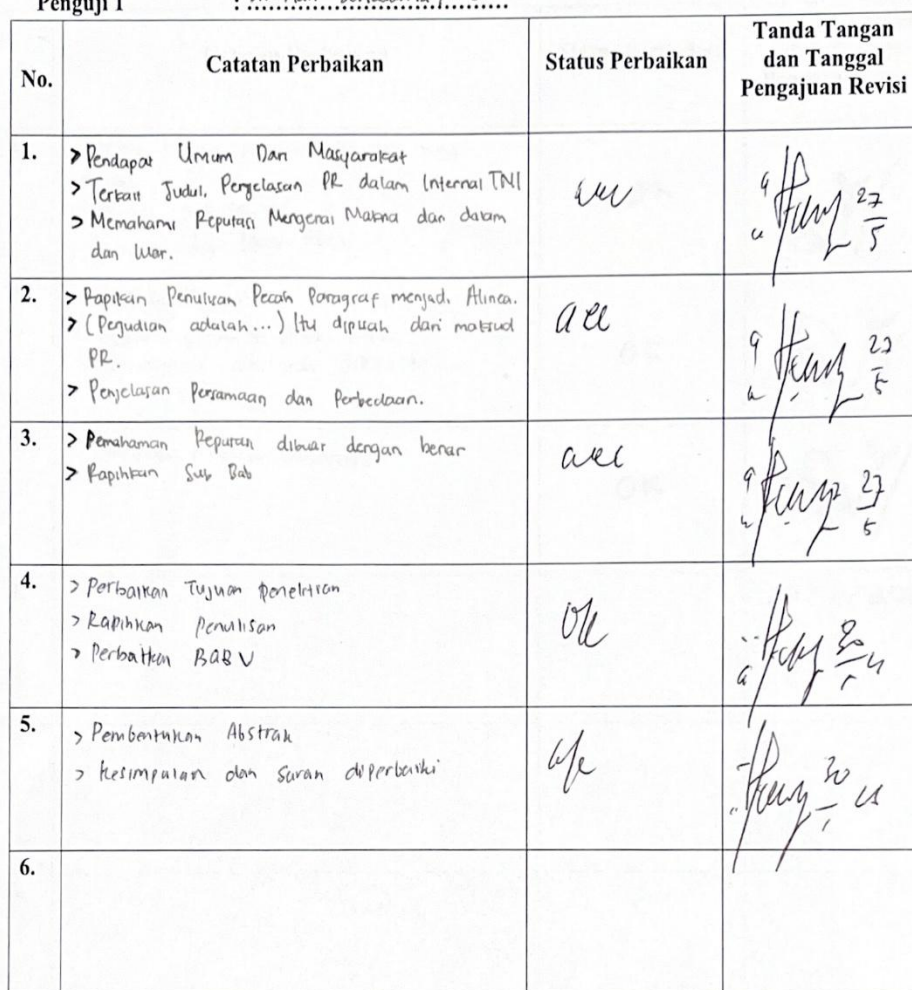 Penguji 1 :
No. Catatan Perbaikan Status Perbaikan Tanda Tangan
dan Tanggal
Pengajuan Revisi
1. > Pendapat Umum Dan Masyarakat
> Terkait Judul, Penjelasan PR dalam Internal TNI
> Memahami Reputasi Mengenai Makna dan dalam
dan luar.
acc
27
5
2. > Rapikan Penulisan Pecah Paragraf menjadi Alinea.
> (Perjudian adalah...) Itu dipisah dari maksud
PR.
> Penjelasan Persamaan dan Perbedaan.
acc
27
5
3. > Pemahaman Reputasi dibuat dengan benar
> Rapihkan Sub Bab
acc
27
5
4. > Perbaikan Tujuan penelitian
> Rapihkan Penulisan
> Perbaikan BAB V
Ok
30
5. > Pembentukan Abstrak
> Kesimpulan dan saran diperbaiki
30
6.